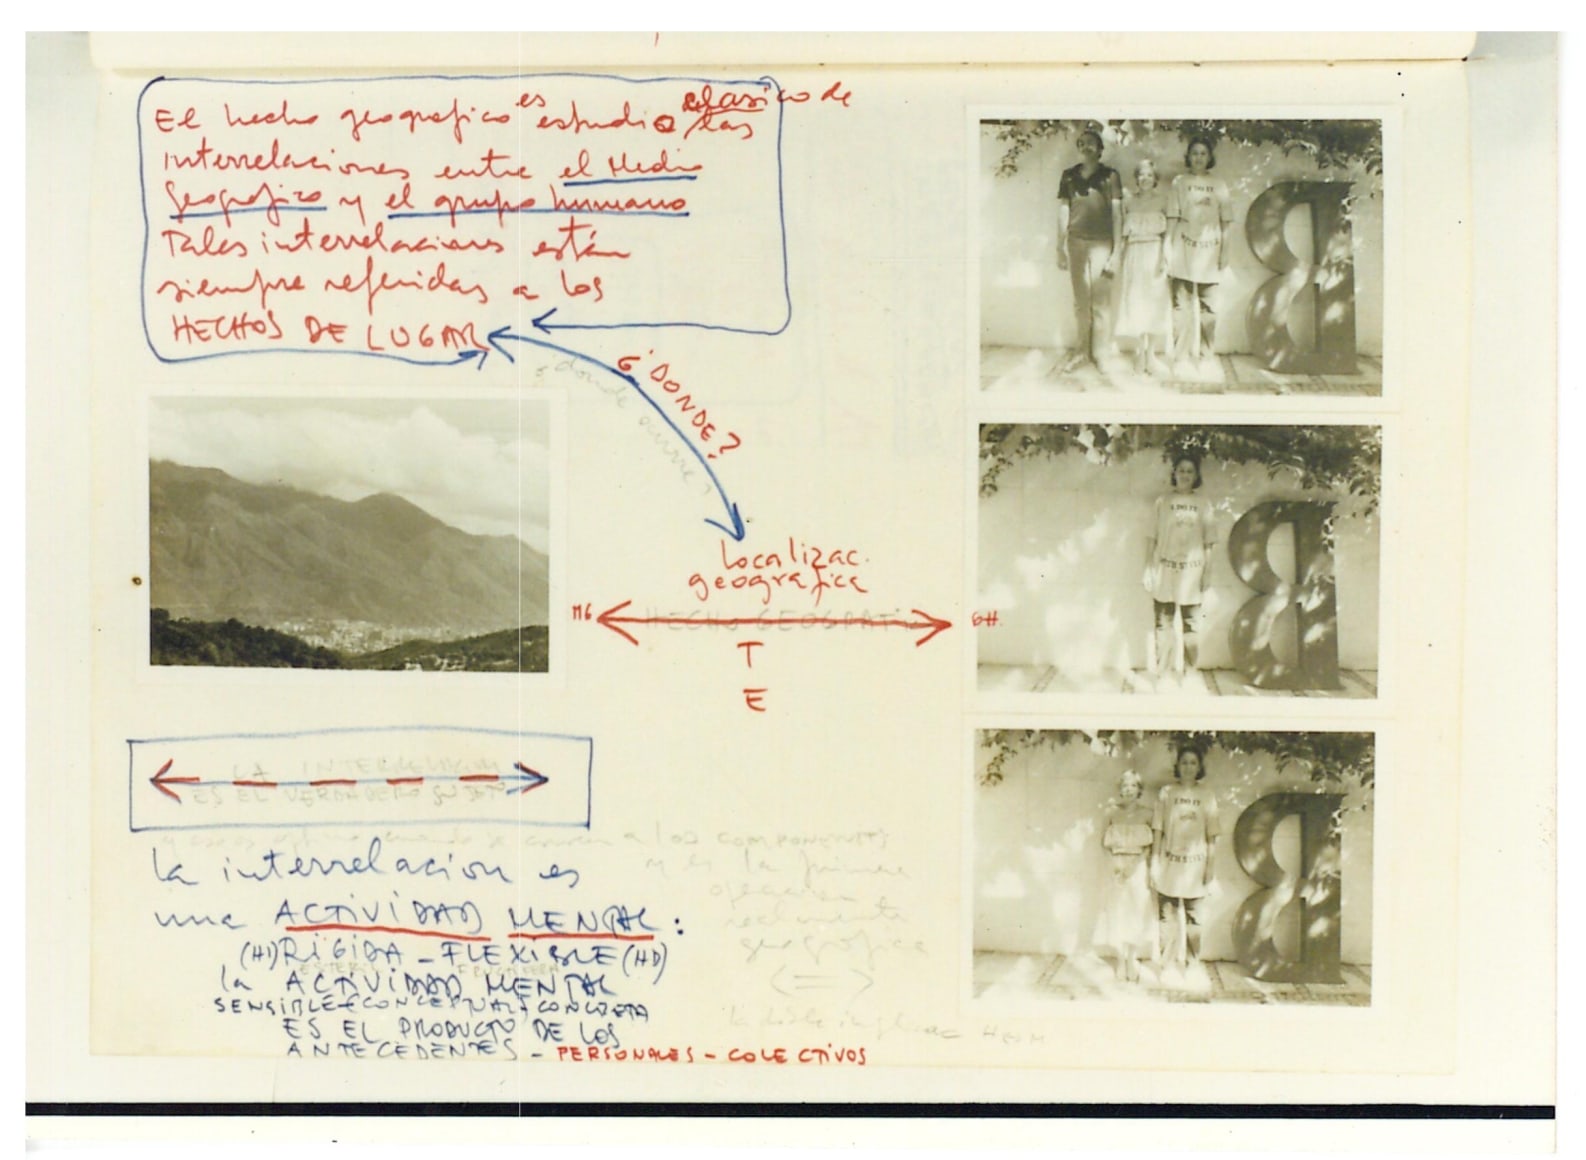 El hecho geografico es estudio clasico de las
interrelaciones entre el Medio
geografico y el grupo humano
Tales interrelaciones están
siempre referidas a los
HECHOS DE LUGAR
¿DONDE?
¿donde ocurre?
Localizac.
geografica
MG HECHO GEOGRAFIC GH.
T
E
LA INTERRELACION
ES EL VERDADERO SUJETO
a los COMPONENTES
y es la primera
operacion
realmente
geografica
La interrelacion es
una ACTIVIDAD MENTAL:
(HI) RIGIDA - FLEXIBLE (HD)
la ACTIVIDAD MENTAL
SENSIBLE-CONCEPTUAL-CONCRETA
ES EL PRODUCTO DE LOS
ANTECEDENTES - PERSONALES - COLECTIVOS
I DO IT
WITH STYLE
B
I DO IT
WITH STYLE
B
I DO IT
WITH STYLE
B